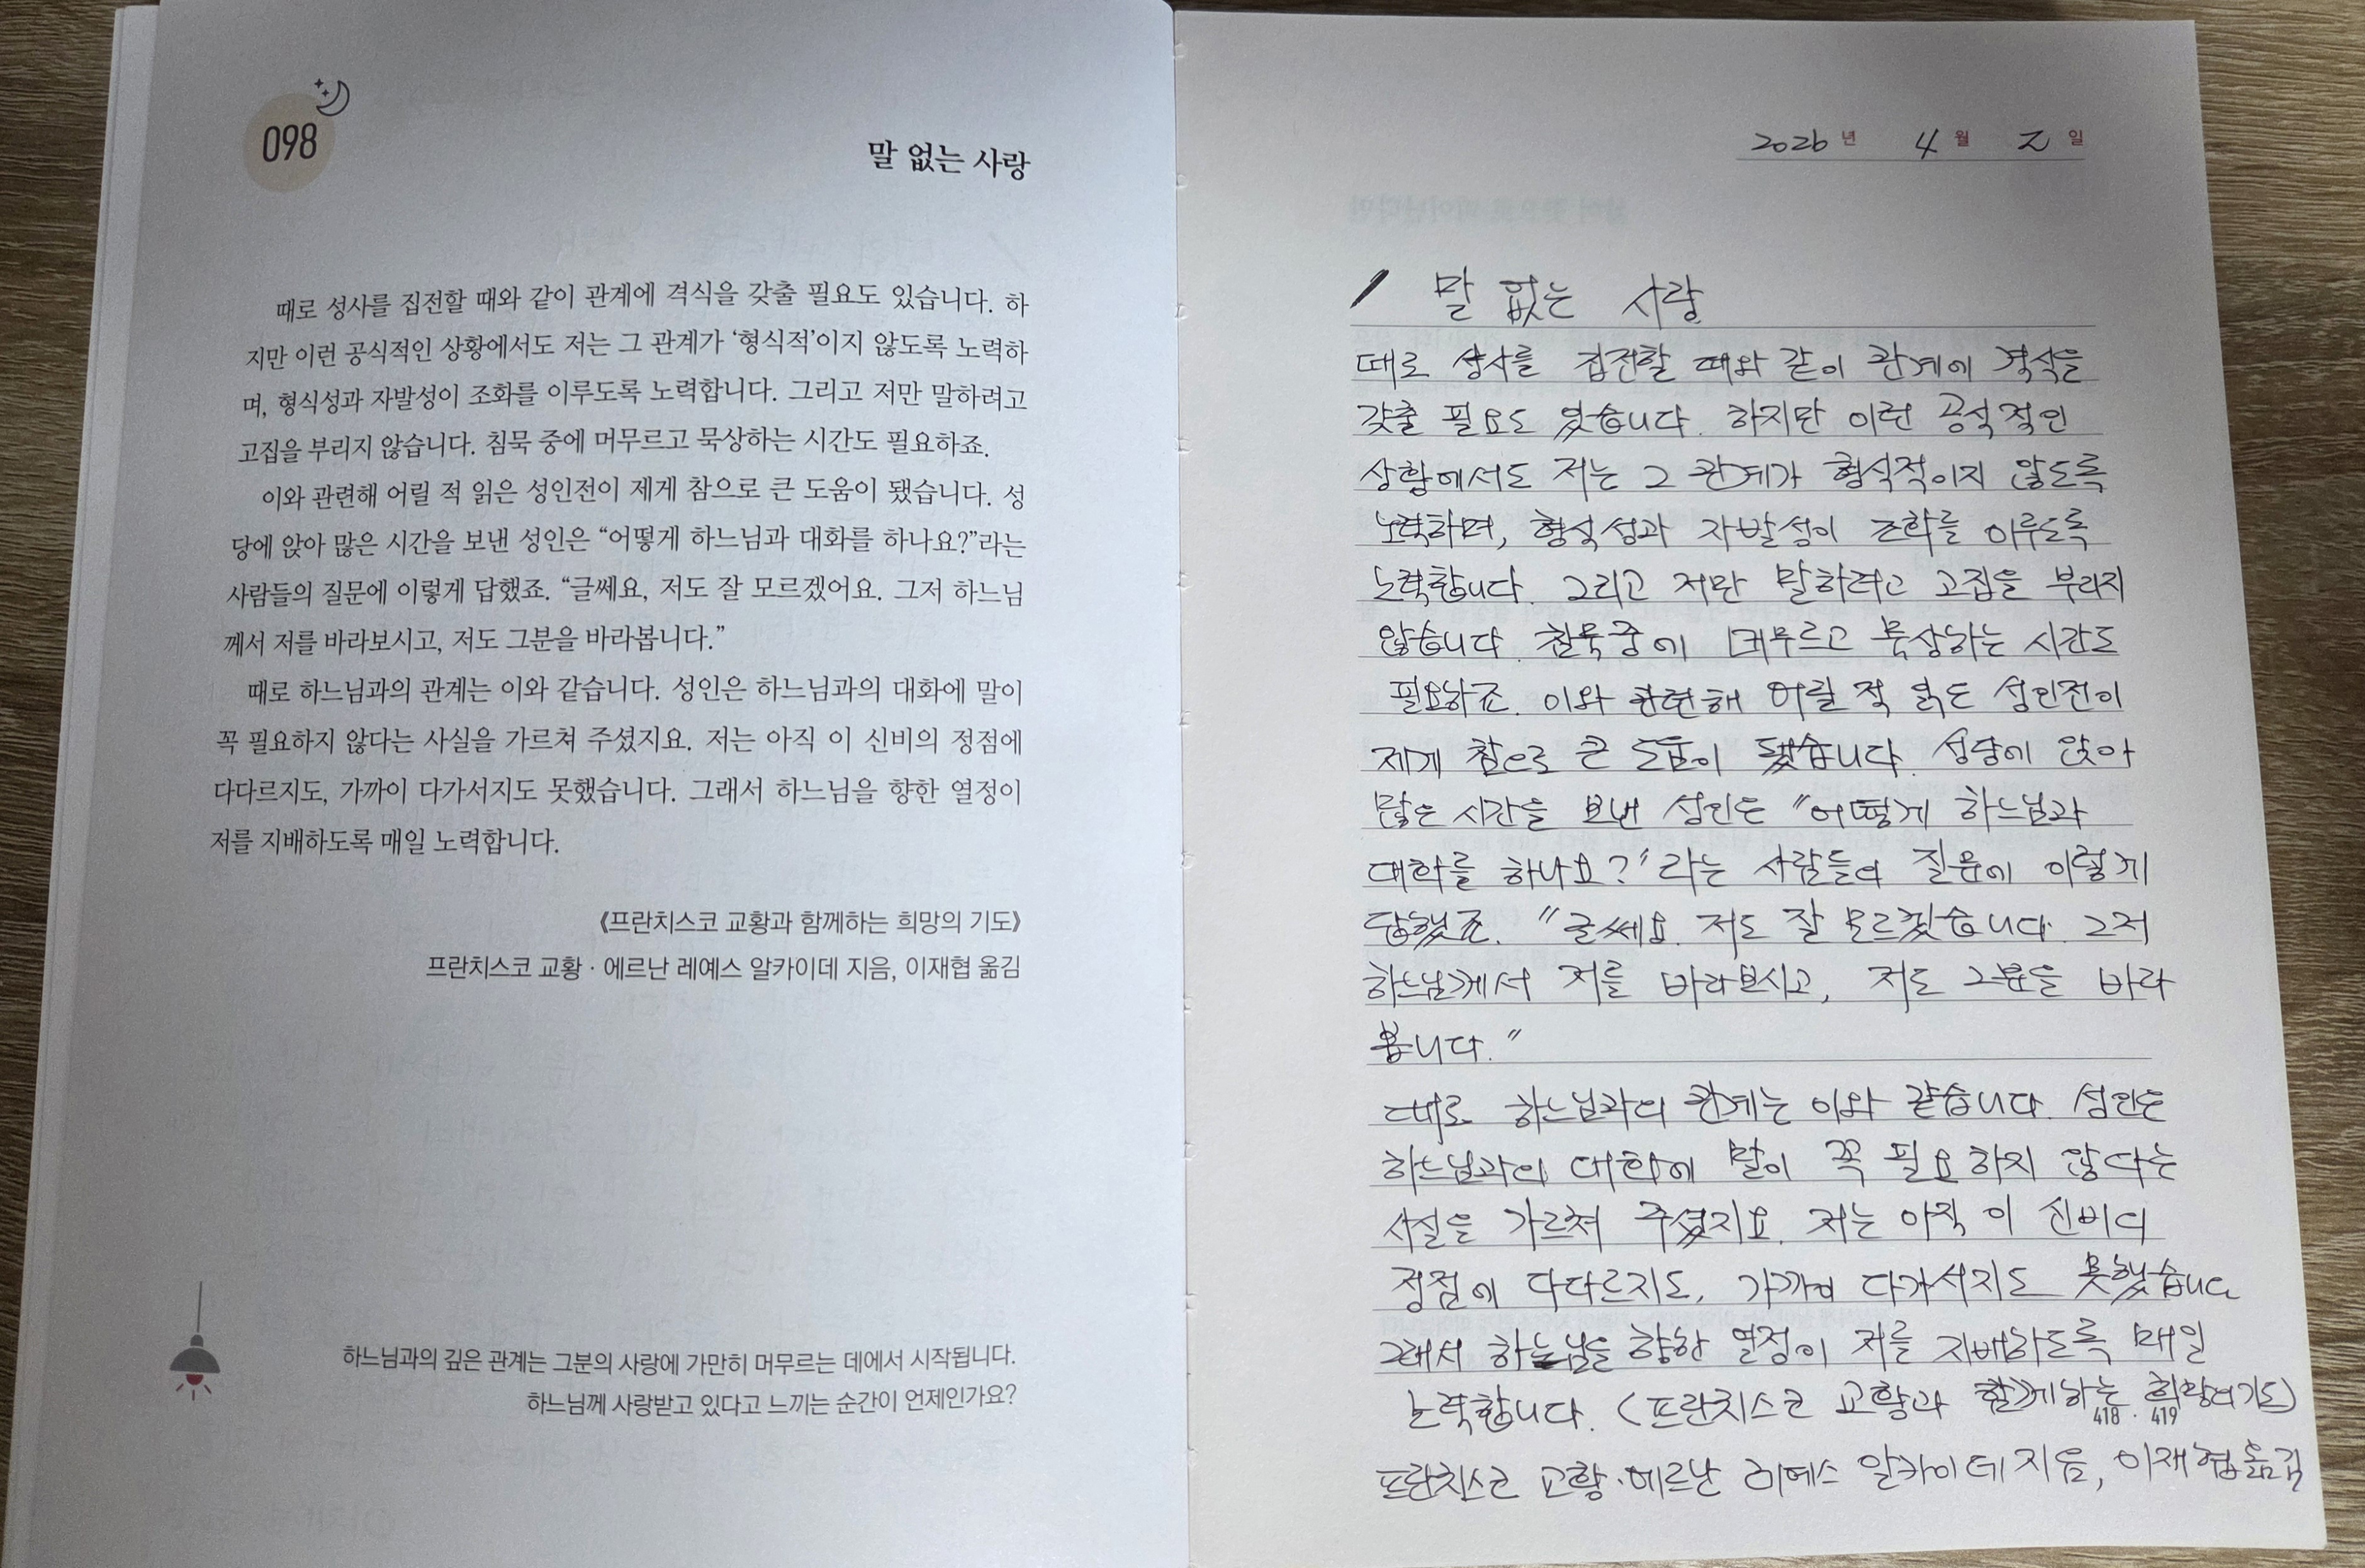 098
말 없는 사랑
때로 성사를 집전할 때와 같이 관계에 격식을 갖출 필요도 있습니다. 하
지만 이런 공식적인 상황에서도 저는 그 관계가 ‘형식적’이지 않도록 노력하
며, 형식성과 자발성이 조화를 이루도록 노력합니다. 그리고 저만 말하려고
고집을 부리지 않습니다. 침묵 중에 머무르고 묵상하는 시간도 필요하죠.
이와 관련해 어릴 적 읽은 성인전이 제게 참으로 큰 도움이 됐습니다. 성
당에 앉아 많은 시간을 보낸 성인은 “어떻게 하느님과 대화를 하나요?”라는
사람들의 질문에 이렇게 답했죠. “글쎄요, 저도 잘 모르겠어요. 그저 하느님
께서 저를 바라보시고, 저도 그분을 바라봅니다.”
때로 하느님과의 관계는 이와 같습니다. 성인은 하느님과의 대화에 말이
꼭 필요하지 않다는 사실을 가르쳐 주셨지요. 저는 아직 이 신비의 정점에
다다르지도, 가까이 다가서지도 못했습니다. 그래서 하느님을 향한 열정이
저를 지배하도록 매일 노력합니다.
《프란치스코 교황과 함께하는 희망의 기도》
프란치스코 교황 · 에르난 레예스 알카이데 지음, 이재협 옮김
하느님과의 깊은 관계는 그분의 사랑에 가만히 머무르는 데에서 시작됩니다.
하느님께 사랑받고 있다고 느끼는 순간이 언제인가요?
2026년 4월 2일
말 없는 사랑
때로 성사를 집전할 때와 같이 관계에 격식을
갖출 필요도 있습니다. 하지만 이런 공식적인
상황에서도 저는 그 관계가 형식적이지 않도록
노력하며, 형식성과 자발성이 조화를 이루도록
노력합니다. 그리고 저만 말하려고 고집을 부리지
않습니다. 침묵중에 머무르고 묵상하는 시간도
필요하죠. 이와 관련해 어릴 적 읽은 성인전이
제게 참으로 큰 도움이 됐습니다. 성당에 앉아
많은 시간을 보낸 성인은 "어떻게 하느님과
대화를 하나요?"라는 사람들의 질문에 이렇게
답했죠. "글쎄요. 저도 잘 모르겠습니다. 그저
하느님께서 저를 바라보시고, 저도 그분을 바라
봅니다."
때로 하느님과의 관계는 이와 같습니다. 성인은
하느님과의 대화에 말이 꼭 필요하지 않다는
사실을 가르쳐 주셨지요. 저는 아직 이 신비의
정점에 다다르지도, 가까이 다가서지도 못했습니다
그래서 하느님을 향한 열정이 저를 지배하도록 매일
노력합니다. (프란치스코 교황과 함께하는 희망의 기도)
418 · 419
프란치스코 교황·에르난 레예스 알카이데 지음, 이재협 옮김